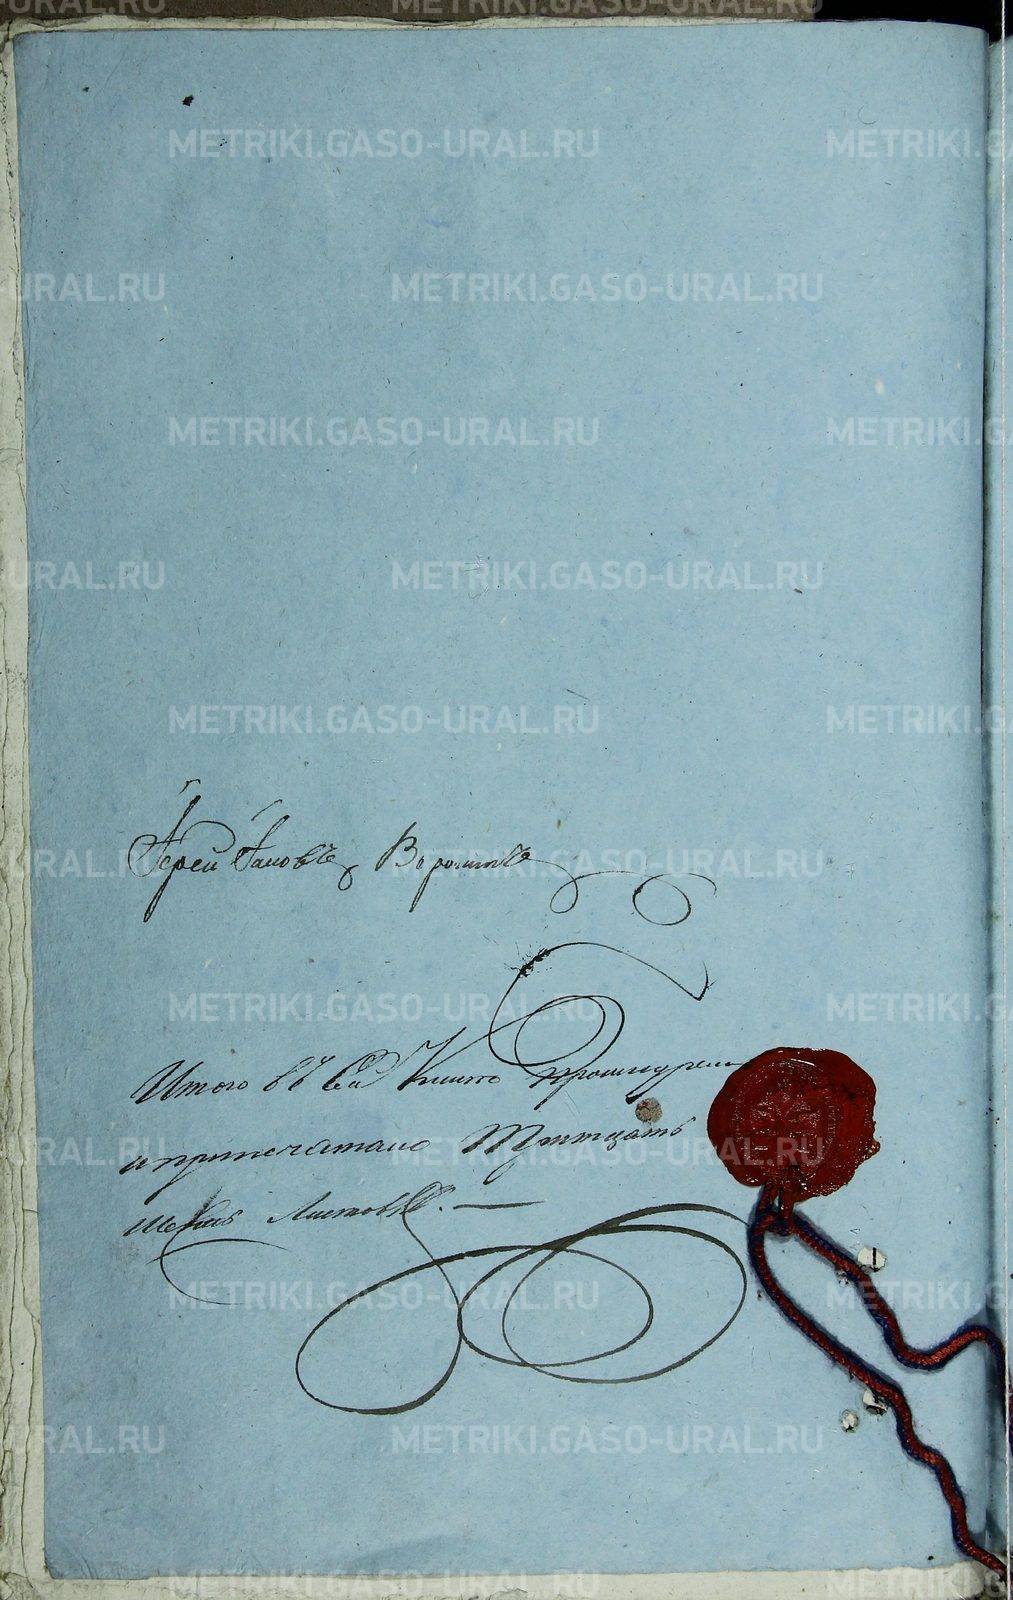 METRIKI.GASO-URAL.RU
Іерей Іаковъ
Итого въ сей Книге прошнурено
и припечатано Тритцать
шесть Листовъ. —